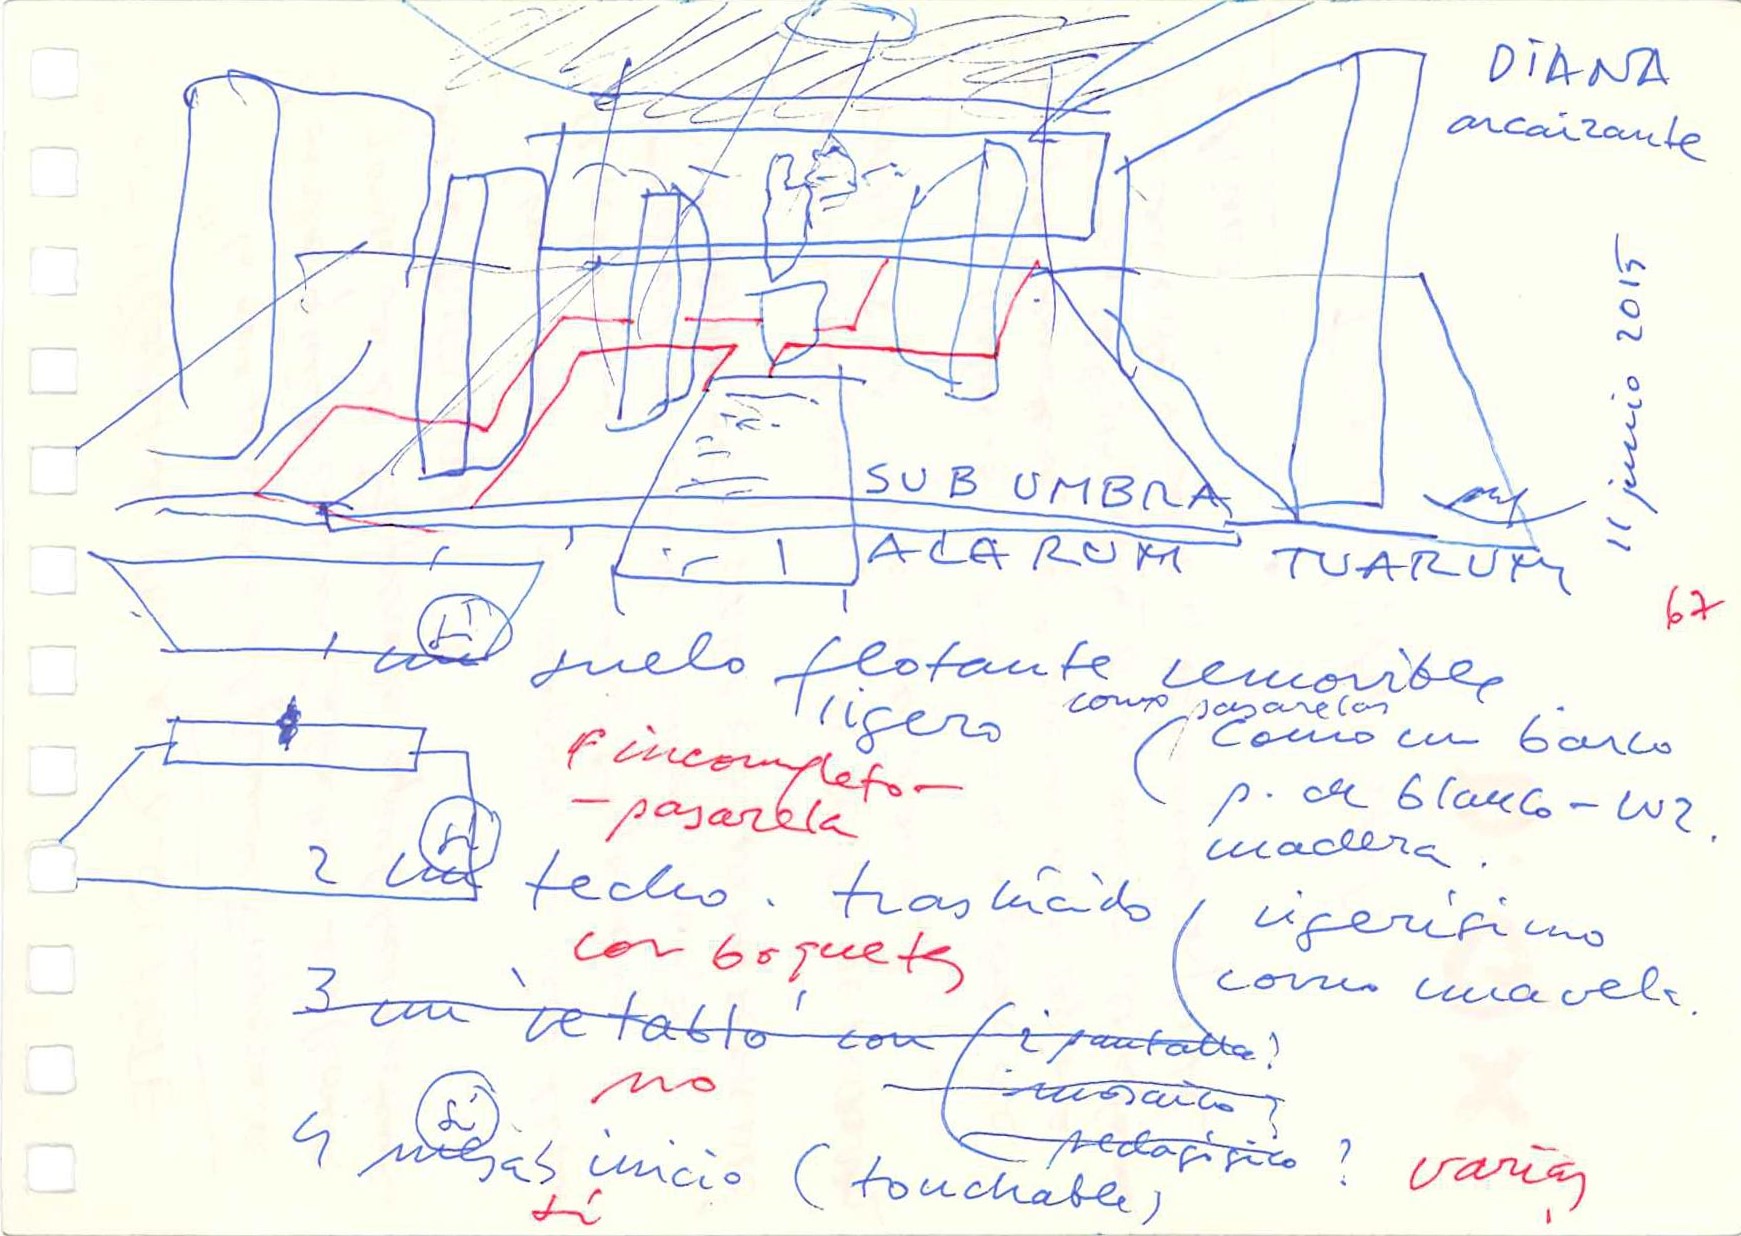 DIANA
arcaizante
11 junio 2015
SUB UMBRA
ALARUM TUARUM
67
sí
1 un suelo flotante removible
ligero
como pasarelas
(como un barco
p. de blanco - luz.
madera.
incompleto -
- pasarela
sí
2 un techo. traslúcido (ligerísimo
como una vela.
con boquetes
3 un retablo con (¿pantalla?
mosaico?
pedagógico?
no
sí
4 mesas inicio (touchable)
sí
varias